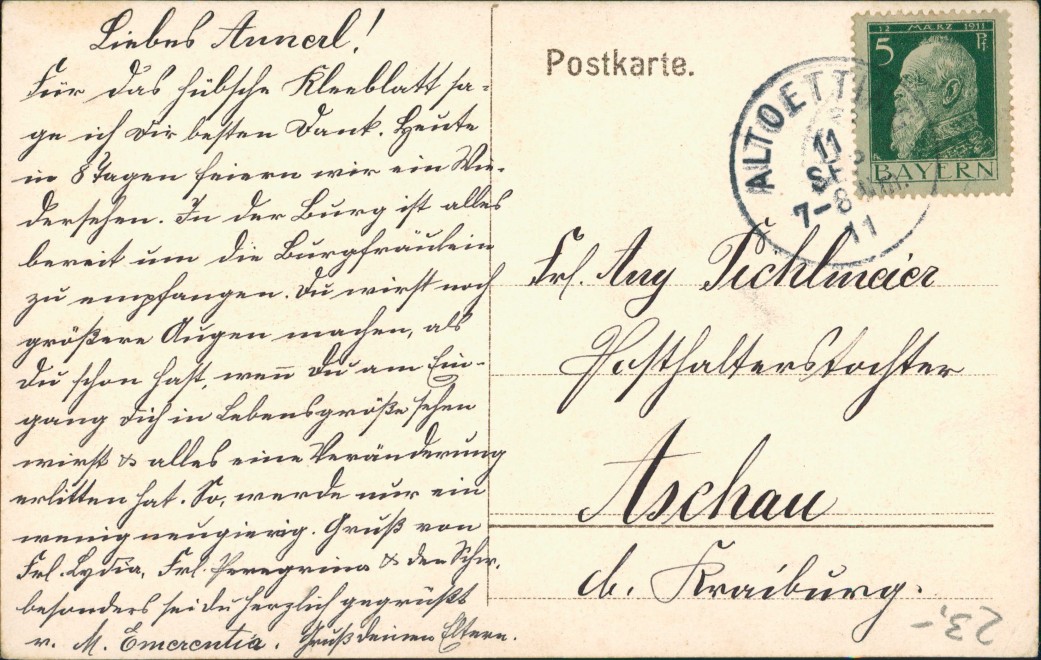 Liebes Annerl!
Für das hübsche Kleeblatt sa-
ge ich dir besten Dank. Heute
in 8 Tagen feiern wir ein Wie-
dersehen. In der Burg ist alles
bereit um die Burgfräulein
zu empfangen. Du wirst noch
größere Augen machen, als
du schon hast, wenn du am Ein-
gang dich in Lebensgröße sehen
wirst & alles eine Veränderung
erlitten hat. So, werde nur ein
wenig neugierig. Gruß von
Frl. Lydia, Frl. Peregrina & den Schw.
besonders sei du herzlich gegrüßt
v. M. Emerentia. Gruß deinen Eltern.
Postkarte.
12 MÄRZ 1911
5 Pf
BAYERN
ALTOETTI
11
SE
7-8
11
Frl. Any Pichlmeier
Posthalterstochter
Aschau
b. Kraiburg.
23,-